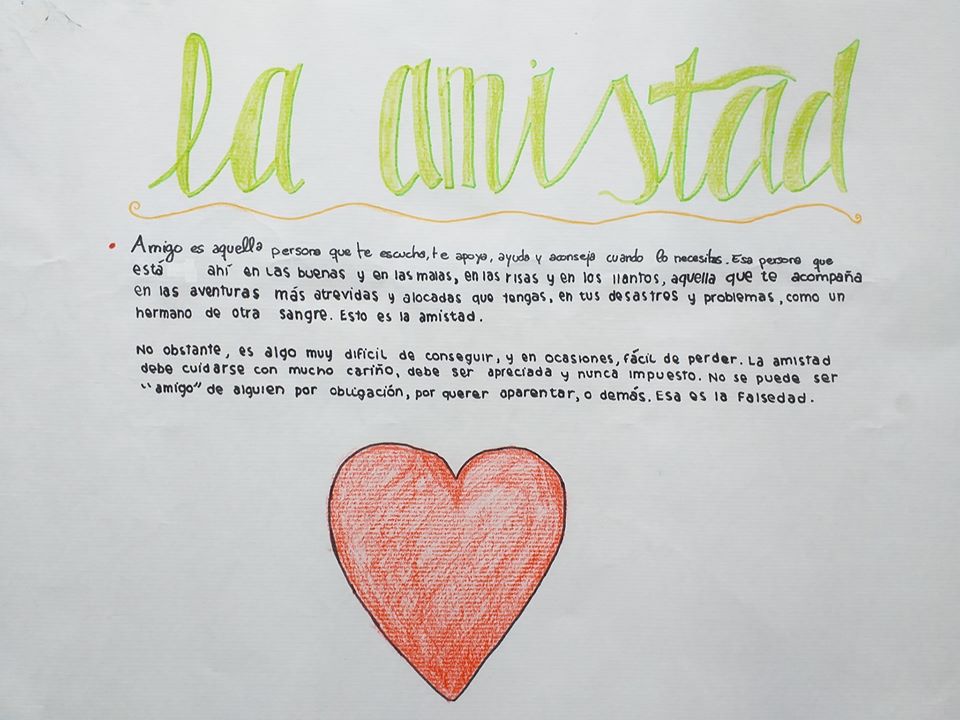 la amistad
• Amigo es aquella persona que te escucha, te apoya, ayuda y aconseja cuando lo necesitas. Esa persona que
está ahí en las buenas y en las malas, en las risas y en los llantos, aquella que te acompaña
en las aventuras más atrevidas y alocadas que tengas, en tus desastres y problemas, como un
hermano de otra sangre. Esto es la amistad.
No obstante, es algo muy difícil de conseguir, y en ocasiones, fácil de perder. La amistad
debe cuidarse con mucho cariño, debe ser apreciada y nunca impuesto. No se puede ser
"amigo" de alguien por obligación, por querer aparentar, o demás. Esa es la Falsedad.